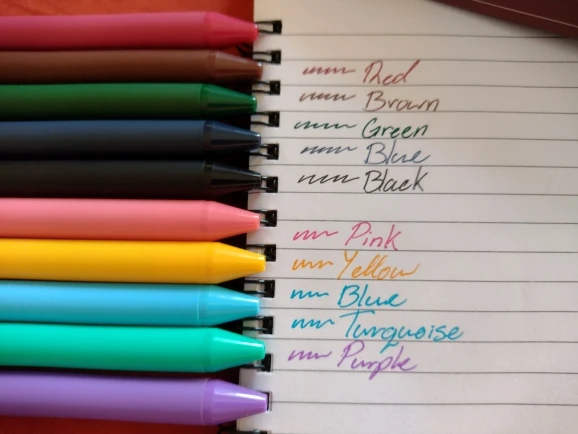 Red
Brown
Green
Blue
Black
Pink
Yellow
Blue
Turquoise
Purple